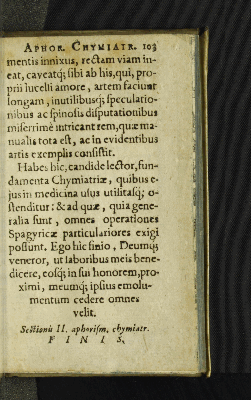 APHOR. CHYMIATR. 103
mentis innixus, rectam viam in-
eat, caveatq; sibi ab his, qui, pro-
prii lucelli amore, artem faciunt
longam, inutilibusq; speculatio-
nibus ac spinosis disputationibus
miserrime intricant rem, quæ ma-
nualis tota est, ac in evidentibus
artis exemplis consistit.
Habes hic, candide lector, fun-
damenta Chymiatriæ, quibus e-
jus in medicina usus utilitasq; o-
stenditur: & ad quæ, quia gene-
ralia sunt, omnes operationes
Spagyricæ particulariores exigi
possunt. Ego hic finio, Deumq;
veneror, ut laboribus meis bene-
dicere, eosq; in sui honorem, pro-
ximi, meumq; ipsius emolu-
mentum cedere omnes
velit.
Sectionis II. aphorism. chymiatr.
FINIS.